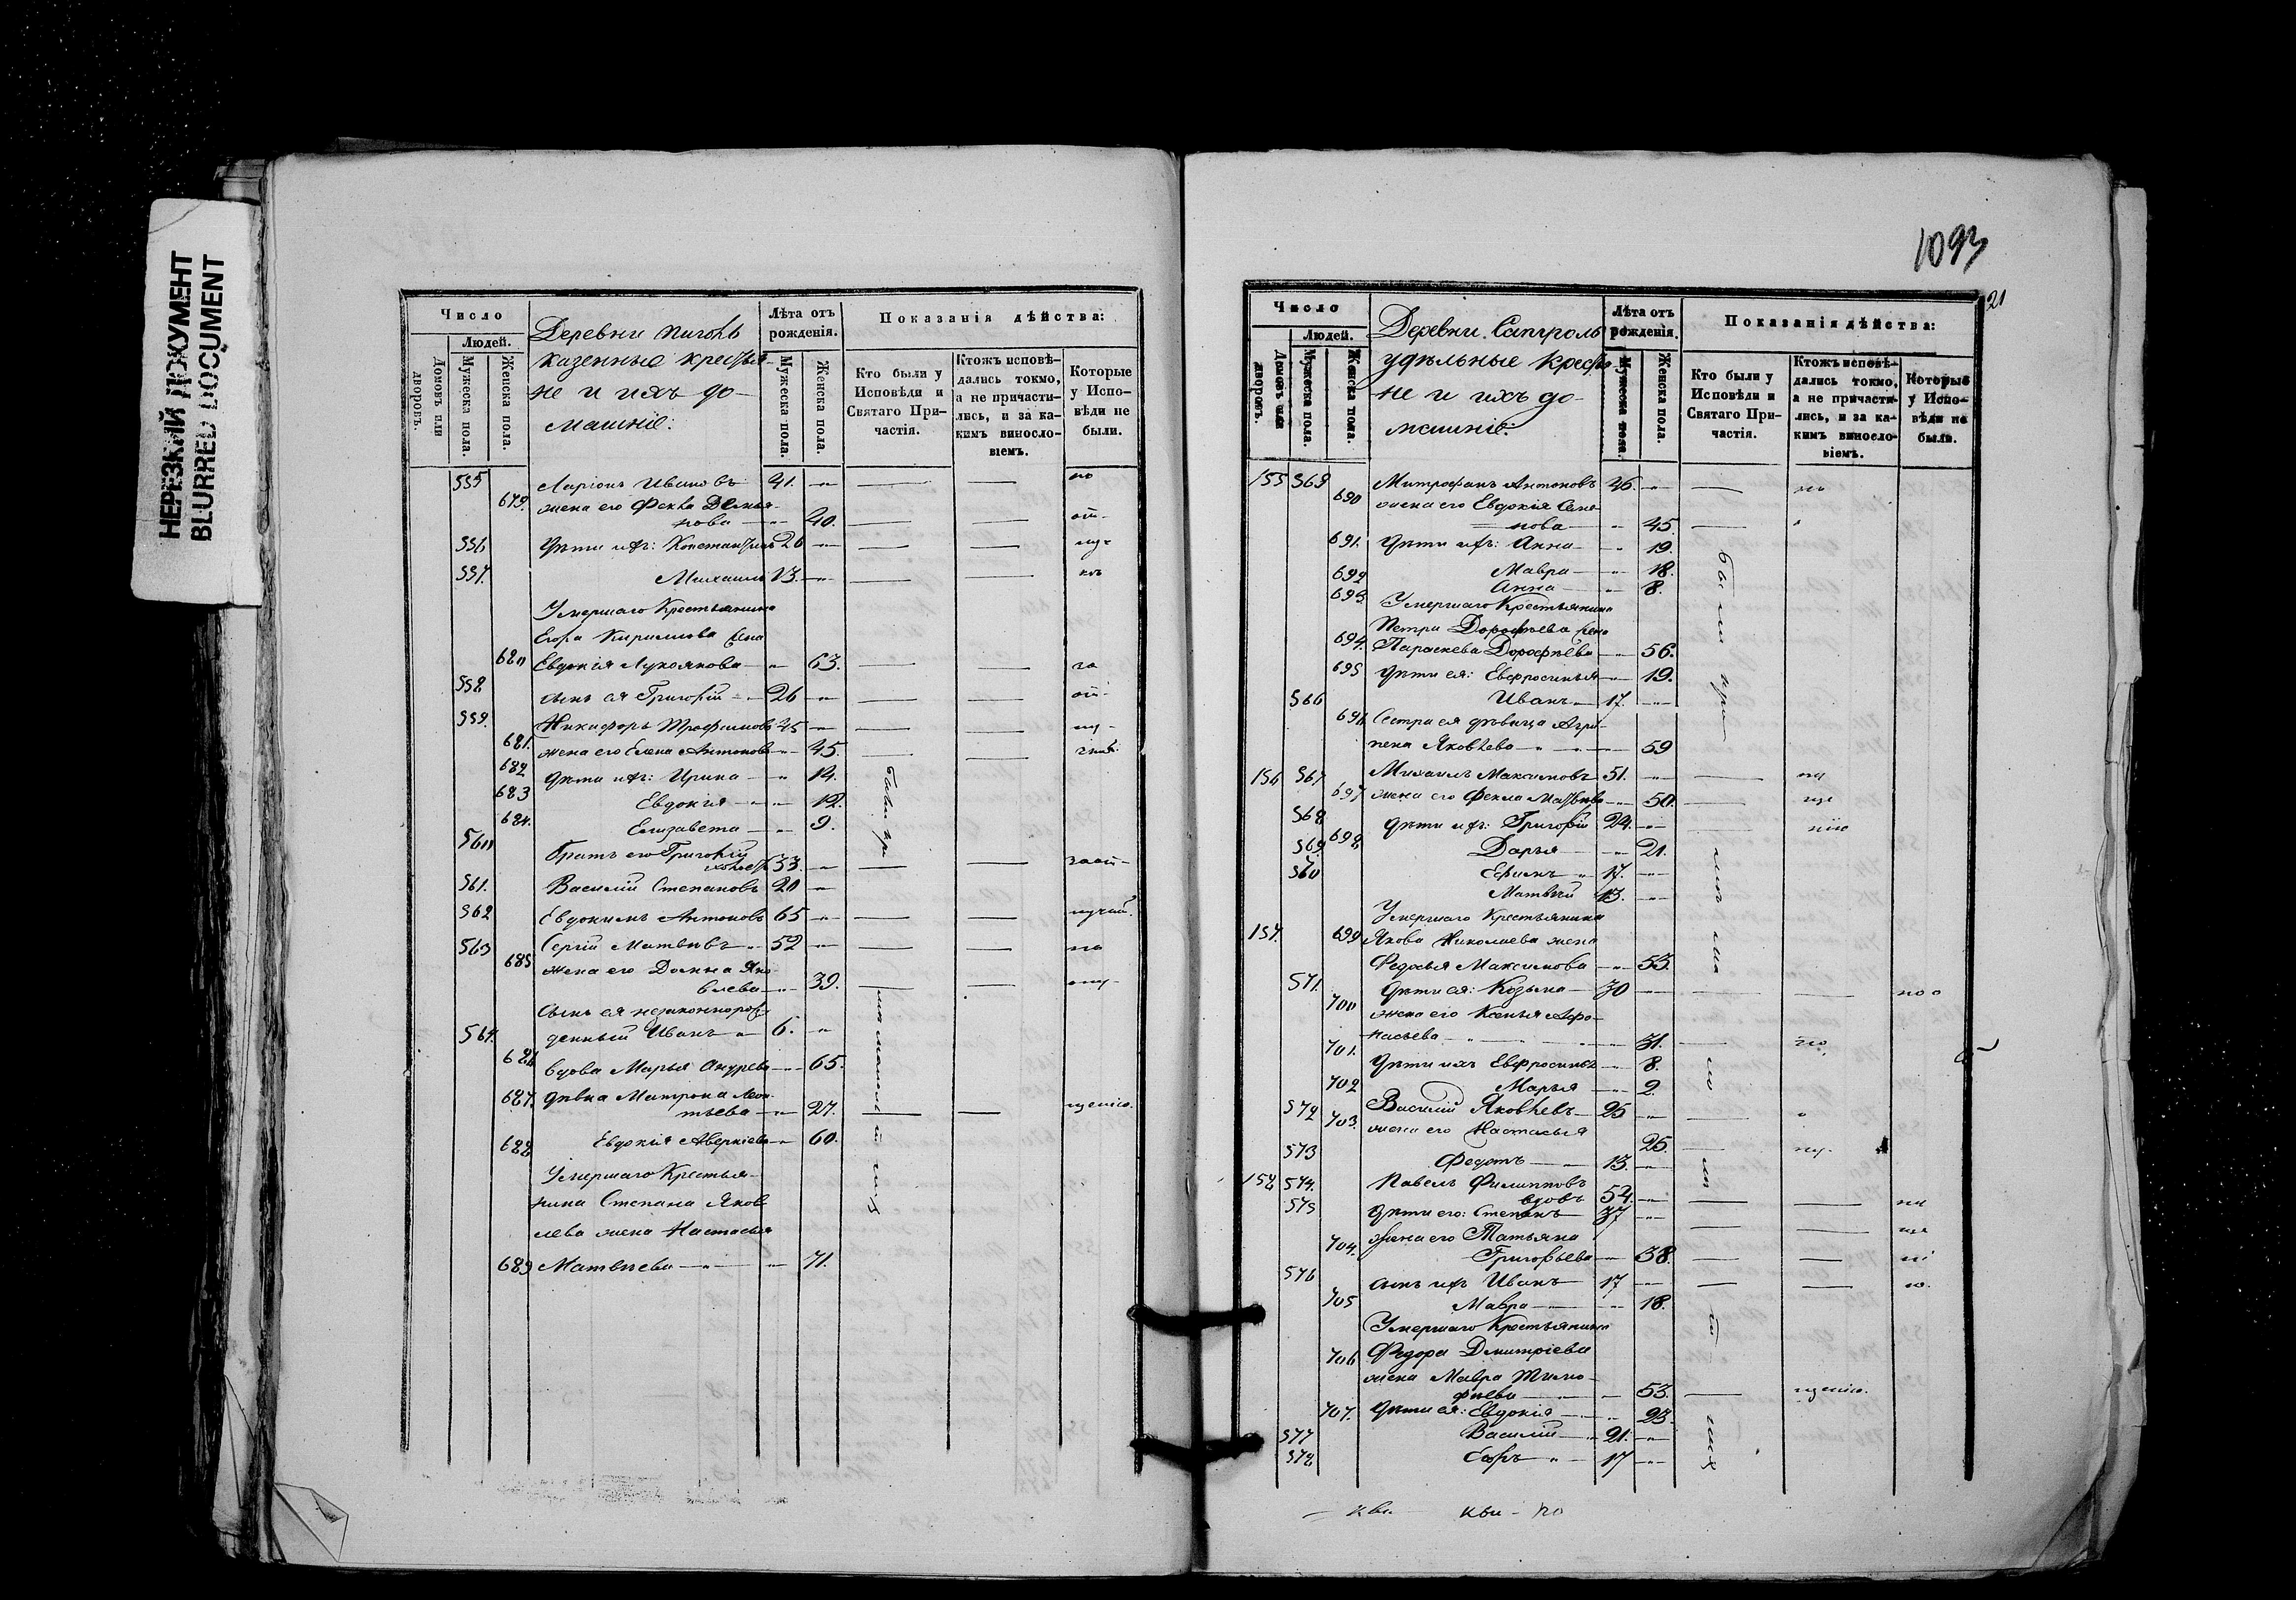 НЕРЕЗКИЙ ДОКУМЕНТ
BLURRED DOCUMENT
Число
Людей.
Домовъ или дворовъ.
Мужеска пола.
Женска пола.
Деревни
казенные крестья-
не и ихъ до-
машніе:
Лѣта отъ рожденія.
Мужеска пола.
Женска пола.
Показанія дѣйства:
Кто были у Исповѣди и Святаго Причастія.
Ктожъ исповѣдались токмо, а не причастились, и за какимъ винословіемъ.
Которые у Исповѣди не были.
555 Ларіонъ Ивановъ 41. по
679. жена его Фекла Демья-
нова 40. от-
556 дѣти ихъ: Константинъ 26
557. Михаилъ 13.
Умершаго Крестьянина
Егора Кирилова жена
680 Евдокія Лукоянова 63. за
558 сынъ ея Григорій 26 от-
559. Никифоръ Трофимовъ 45
681. жена его Елена Антонова 45.
682 дѣти ихъ: Ирина 14.
683 Евдокія 12.
684. Елизавета 9.
560 Братъ его Григорій
холостъ 33.
561. Василій Степановъ 20
562 Евдокимъ Антоновъ 65
563 Сергій Матвѣевъ 52 по
685 жена его Домна Яко-
влева 39.
сынъ ея незаконнорож-
564. денный Иванъ 6.
686 вдова Марья Андрева 65.
687. дѣвка Матрона Леон-
тьева 27. щенію.
688 Евдокія Аверкіева 60.
Умершаго Крестья-
нина Степана Яков
лева жена Настасья
689 Матвѣева 71.
1093
21
Число
Людей.
Домовъ или дворовъ.
Мужеска пола.
Женска пола.
Деревни
удѣльные Кресть
не и ихъ до-
машніе.
Лѣта отъ рожденія.
Мужеска пола.
Женска пола.
Показанія дѣйства:
Кто были у Исповѣди и Святаго Причастія.
Ктожъ исповѣдались токмо, а не причастились, и за какимъ винословіемъ.
Которые у Исповѣди не были.
155 565 Митрофанъ Антоновъ 46.
690 жена его Евдокія Семе
нова 45.
691. дѣти ихъ: Анна 19.
692 Мавра 18.
693 Анна 8.
Умершаго Крестьянина
Петра Дорофѣева жена
694. Параскева Дорофѣева 56.
695 дѣти ея: Евфросинья 19.
566 Иванъ 17.
696 Сестра ея дѣвица Агри-
пена Яковлева 59
156 567 Михаилъ Максимовъ 51.
697 жена его Фекла Матвѣева 50.
568 дѣти ихъ: Григорій 24.
698 Дарья 21.
569. Ефимъ 17.
570 Матвѣй 13.
Умершаго Крестьянина
157. 699 Якова Николаева жена
Федосья Максимова 53.
571. дѣти ея: Козьма 30
700 жена его Ксенья Афо-
насьева 31.
701. дѣти ихъ Евфросинья 8.
702 Марья 2.
572 Василій Яковлевъ 25
703. жена его Настасья
25.
573 Федотъ 13.
158 574. Павелъ Филипповъ
вдовъ 54.
575 дѣти его: Степанъ 37
704. жена его Татьяна
Григорьева 38.
576 сынъ ихъ Иванъ 17
705 Мавра 18.
Умершаго Крестьянина
706 Федора Дмитріева
жена Мавра Тимо-
фѣева 53. щенію.
707. дѣти ея: Евдокія 23
577 Василій 21.
578 Егоръ 17